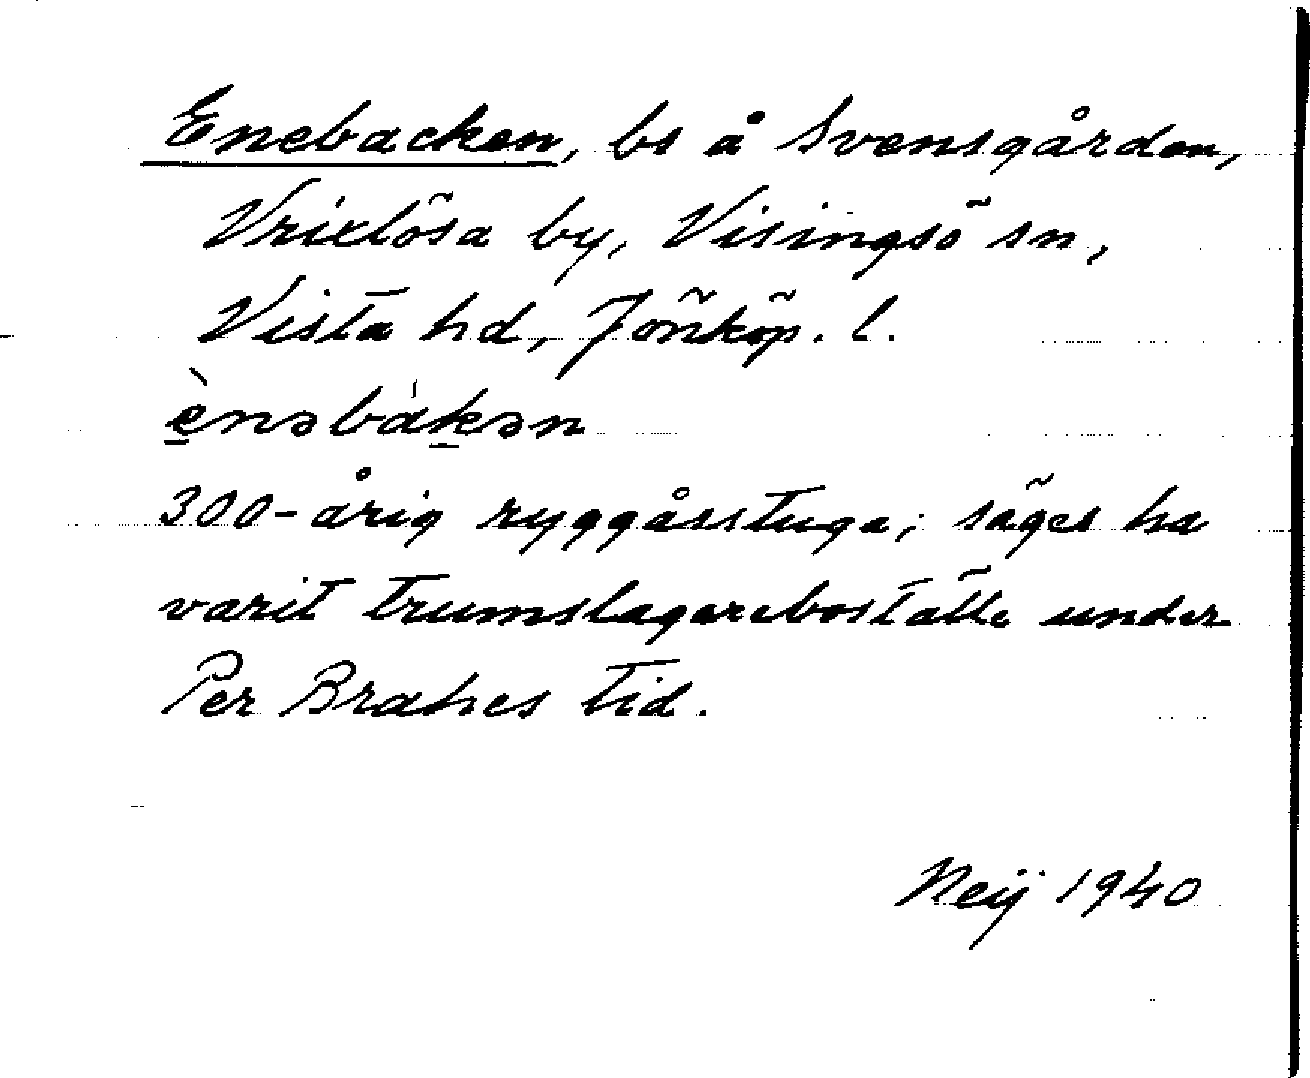 Enebacken, bs å Svensgården,
Vrixlösa by, Visingsö sn,
Vista hd, Jönköp. l.
ènəbákən
300-årig ryggåsstuga; säges ha
varit trumslagareboställe under
Per Brahes tid.
Neij 1940